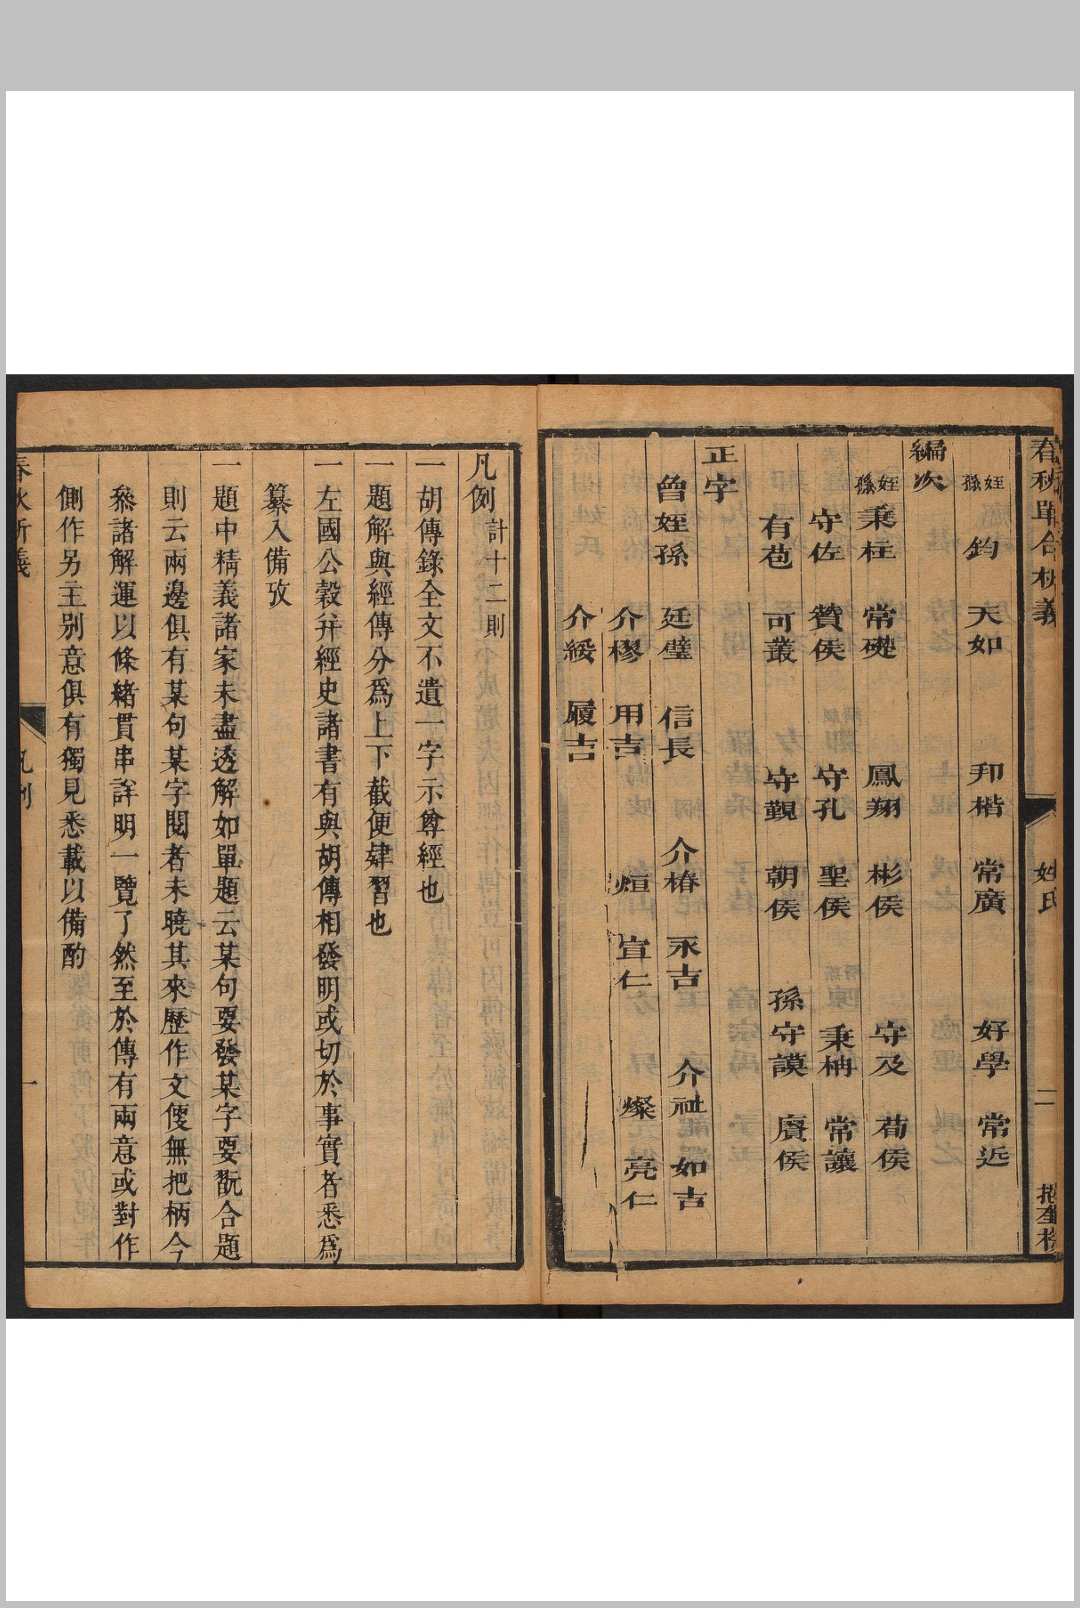 春秋單合析義
姓氏
二
姪孫 鈞 天如 邦楷 常廣 好學 常近
編次
姪孫 秉柱 常礎 鳳翔 彬侯 守及 荀侯
守佐 贊侯 守孔 聖侯 秉柟 常讓
有苞 可叢 守觀 朝侯 孫守謨 賡侯
正字
曾姪孫 廷璧 信長 介椿 永吉 介祉 如吉
介樛 用吉 煊 宣仁 燦 亮仁
介綏 履吉
凡例 計十二則
一胡傳錄全文不遺一字示尊經也
一題解與經傳分為上下截便肄習也
一左國公穀并經史諸書有與胡傳相發明或切於事實者悉為
纂入備攷
一題中精義諸家未盡透解如單題云某句要發某字要翫合題
則云兩邊俱有某句某字閱者未曉其來歷作文便無把柄今
叅諸解運以條緒貫串詳明一覽了然至於傳有兩意或對作
側作另主别意俱有獨見悉載以備酌
凡例
一